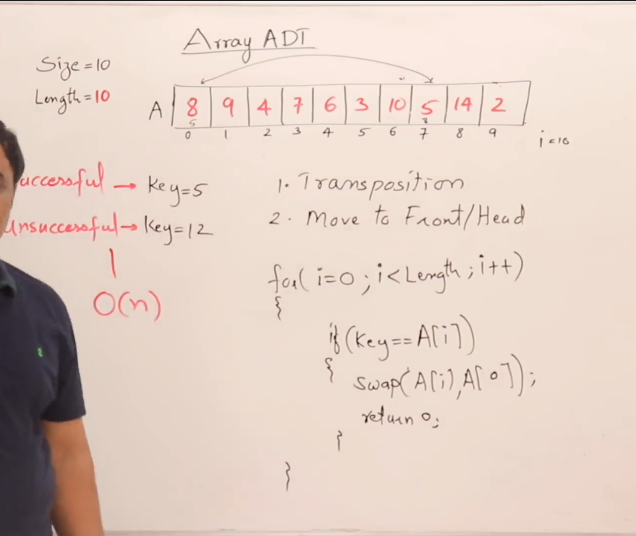 Array ADT
Size=10
Length=10
A 8 9 4 7 6 3 10 5 14 2
5 8
0 1 2 3 4 5 6 7 8 9
i=10
uccessful → Key=5
Unsuccessful → Key=12
O(n)
1. Transposition
2. Move to Front/Head
for(i=0;i<Length;i++)
{
if(Key==A[i])
{
swap(A[i],A[0]);
return 0;
}
}